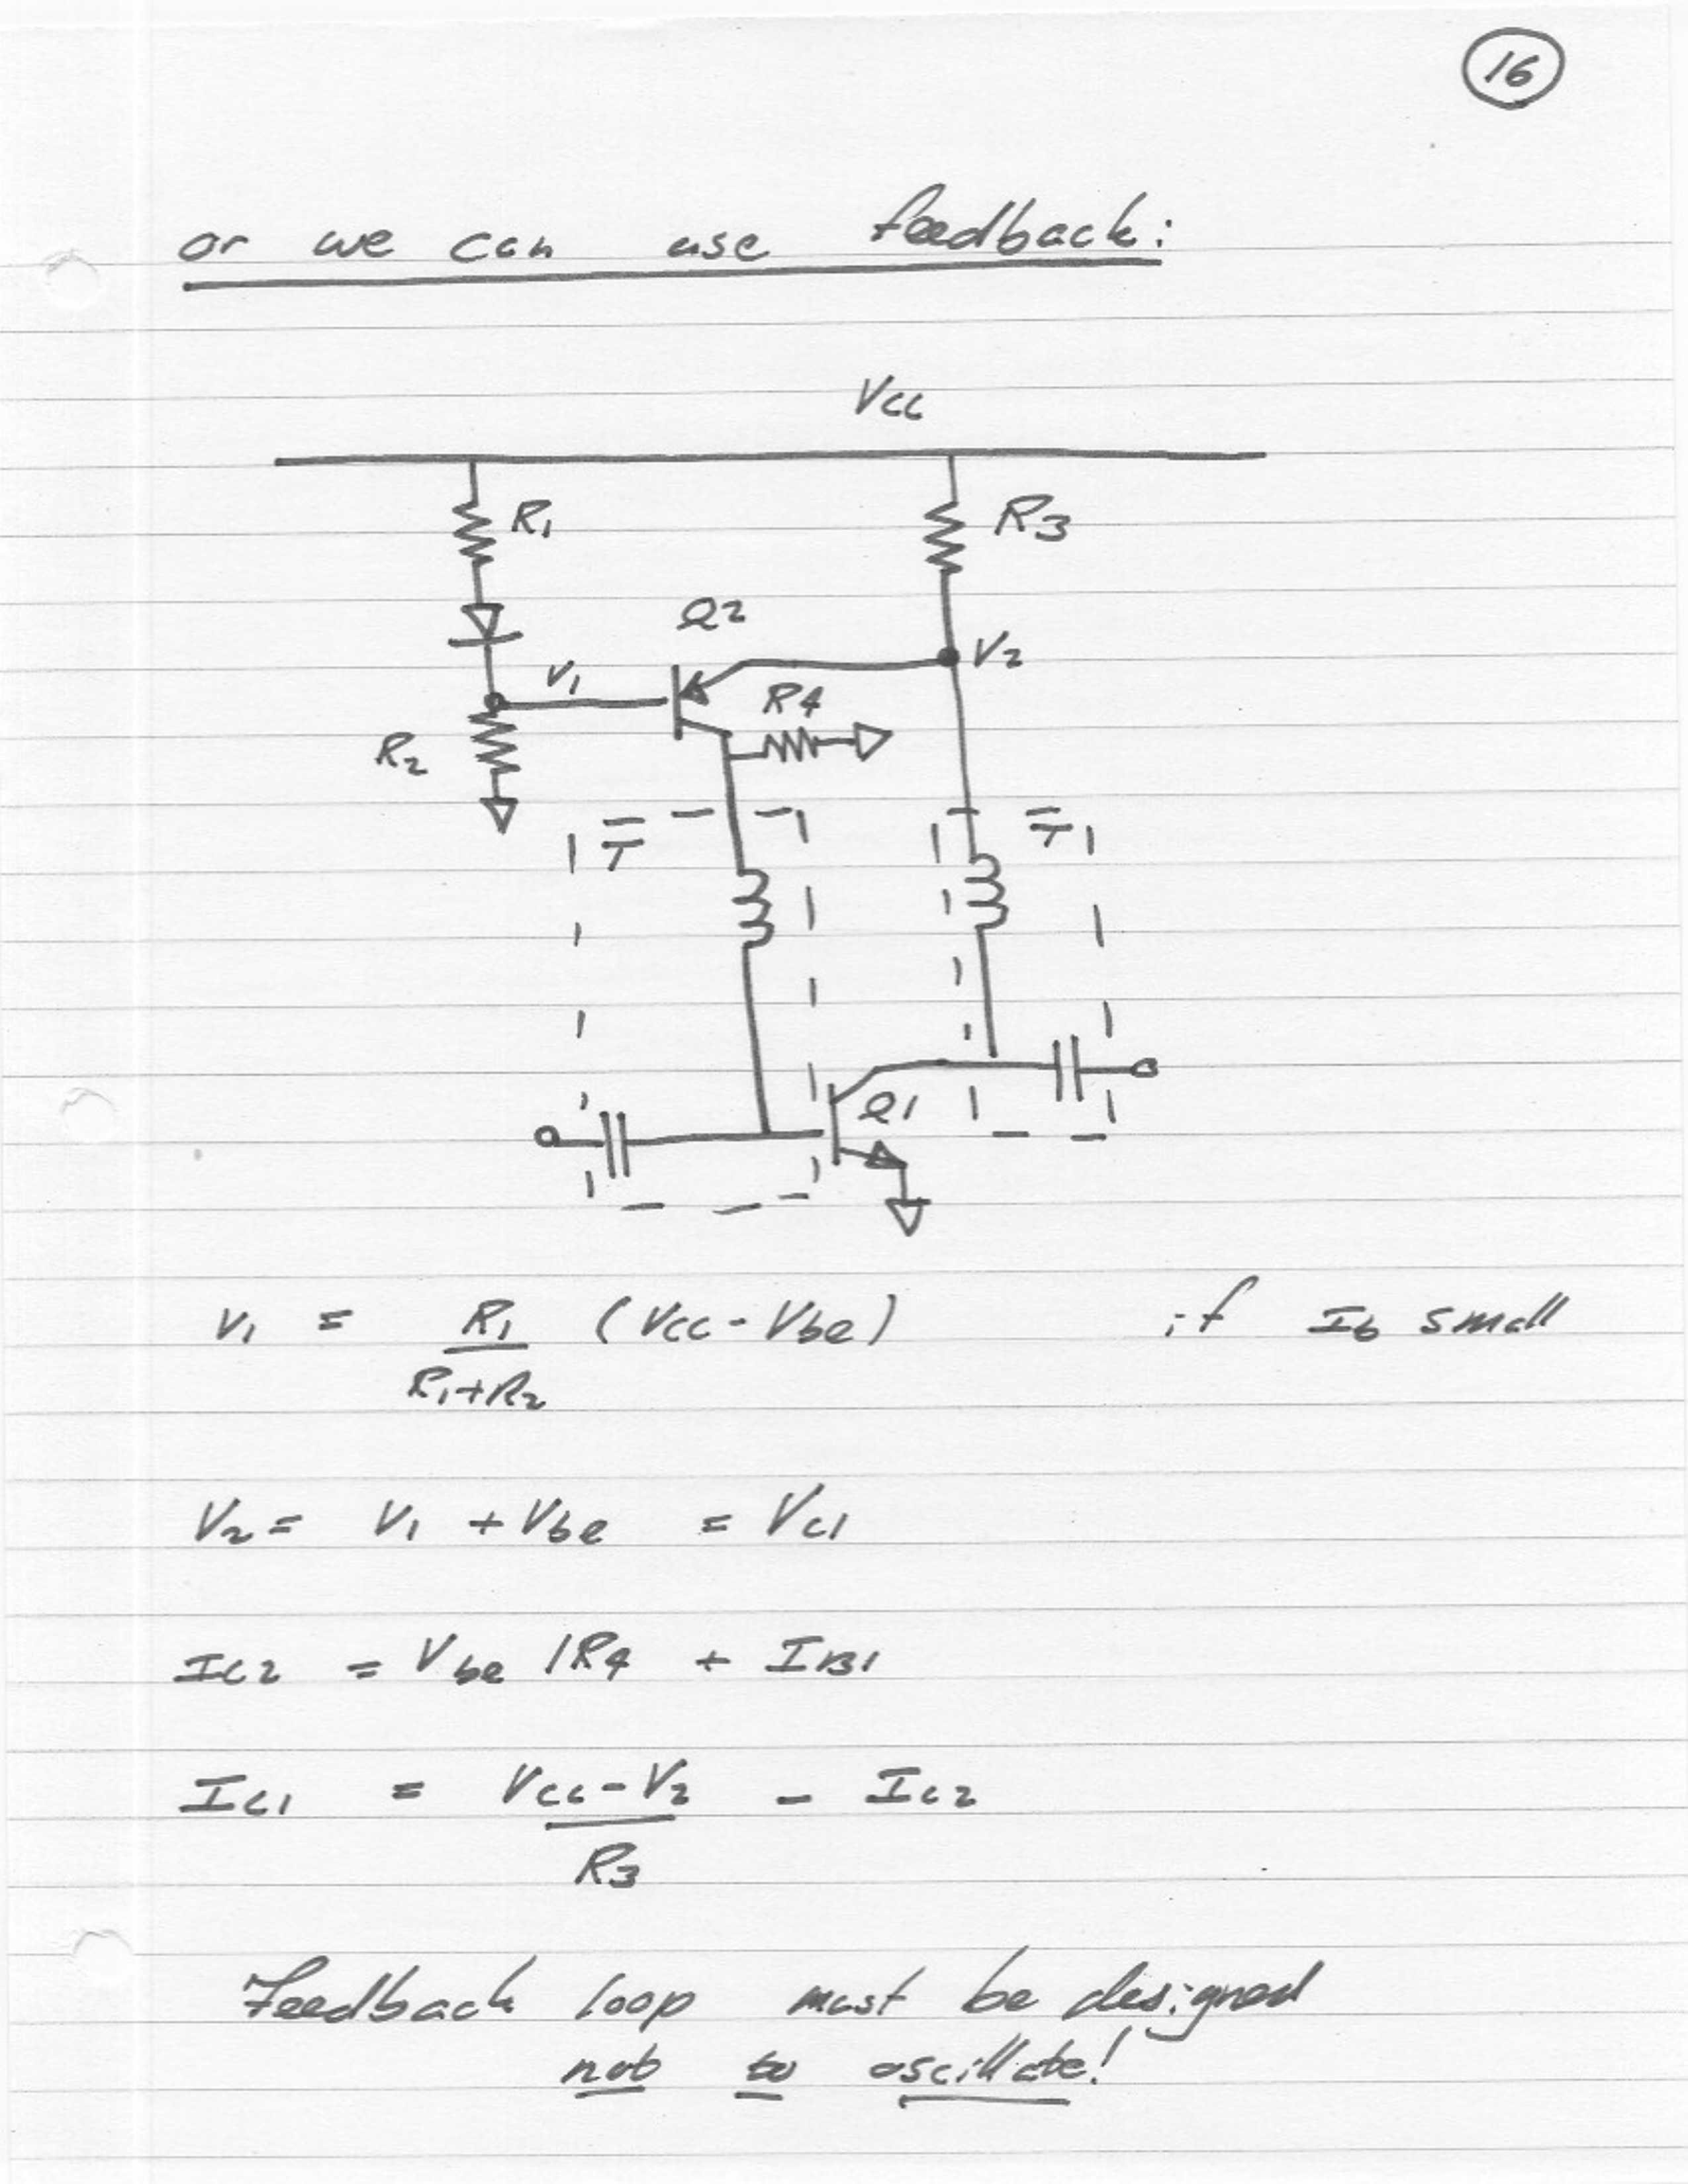 16
or we can use feedback:
Vcc
R1
R3
Q2
V1
V2
R4
R2
T
T
Q1
V1 = R1 (Vcc - Vbe) if Ib small
R1+R2
V2 = V1 + Vbe = Vc1
Ic2 = Vbe /R4 + IB1
Ic1 = Vcc - V2 - Ic2
R3
Feedback loop must be designed
not to oscillate!